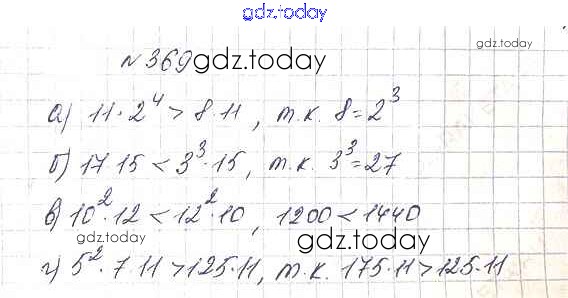 gdz.today
№369 gdz.today
gdz.today
а) 11·2⁴ > 8·11, т.к. 8=2³
б) 17 15 < 3³·15, т.к. 3³=27
в) 10²·12 < 12²·10, 1200<1440
gdz.today
gdz.today
г) 5²·7·11 >125·11, т.к. 175·11>125·11